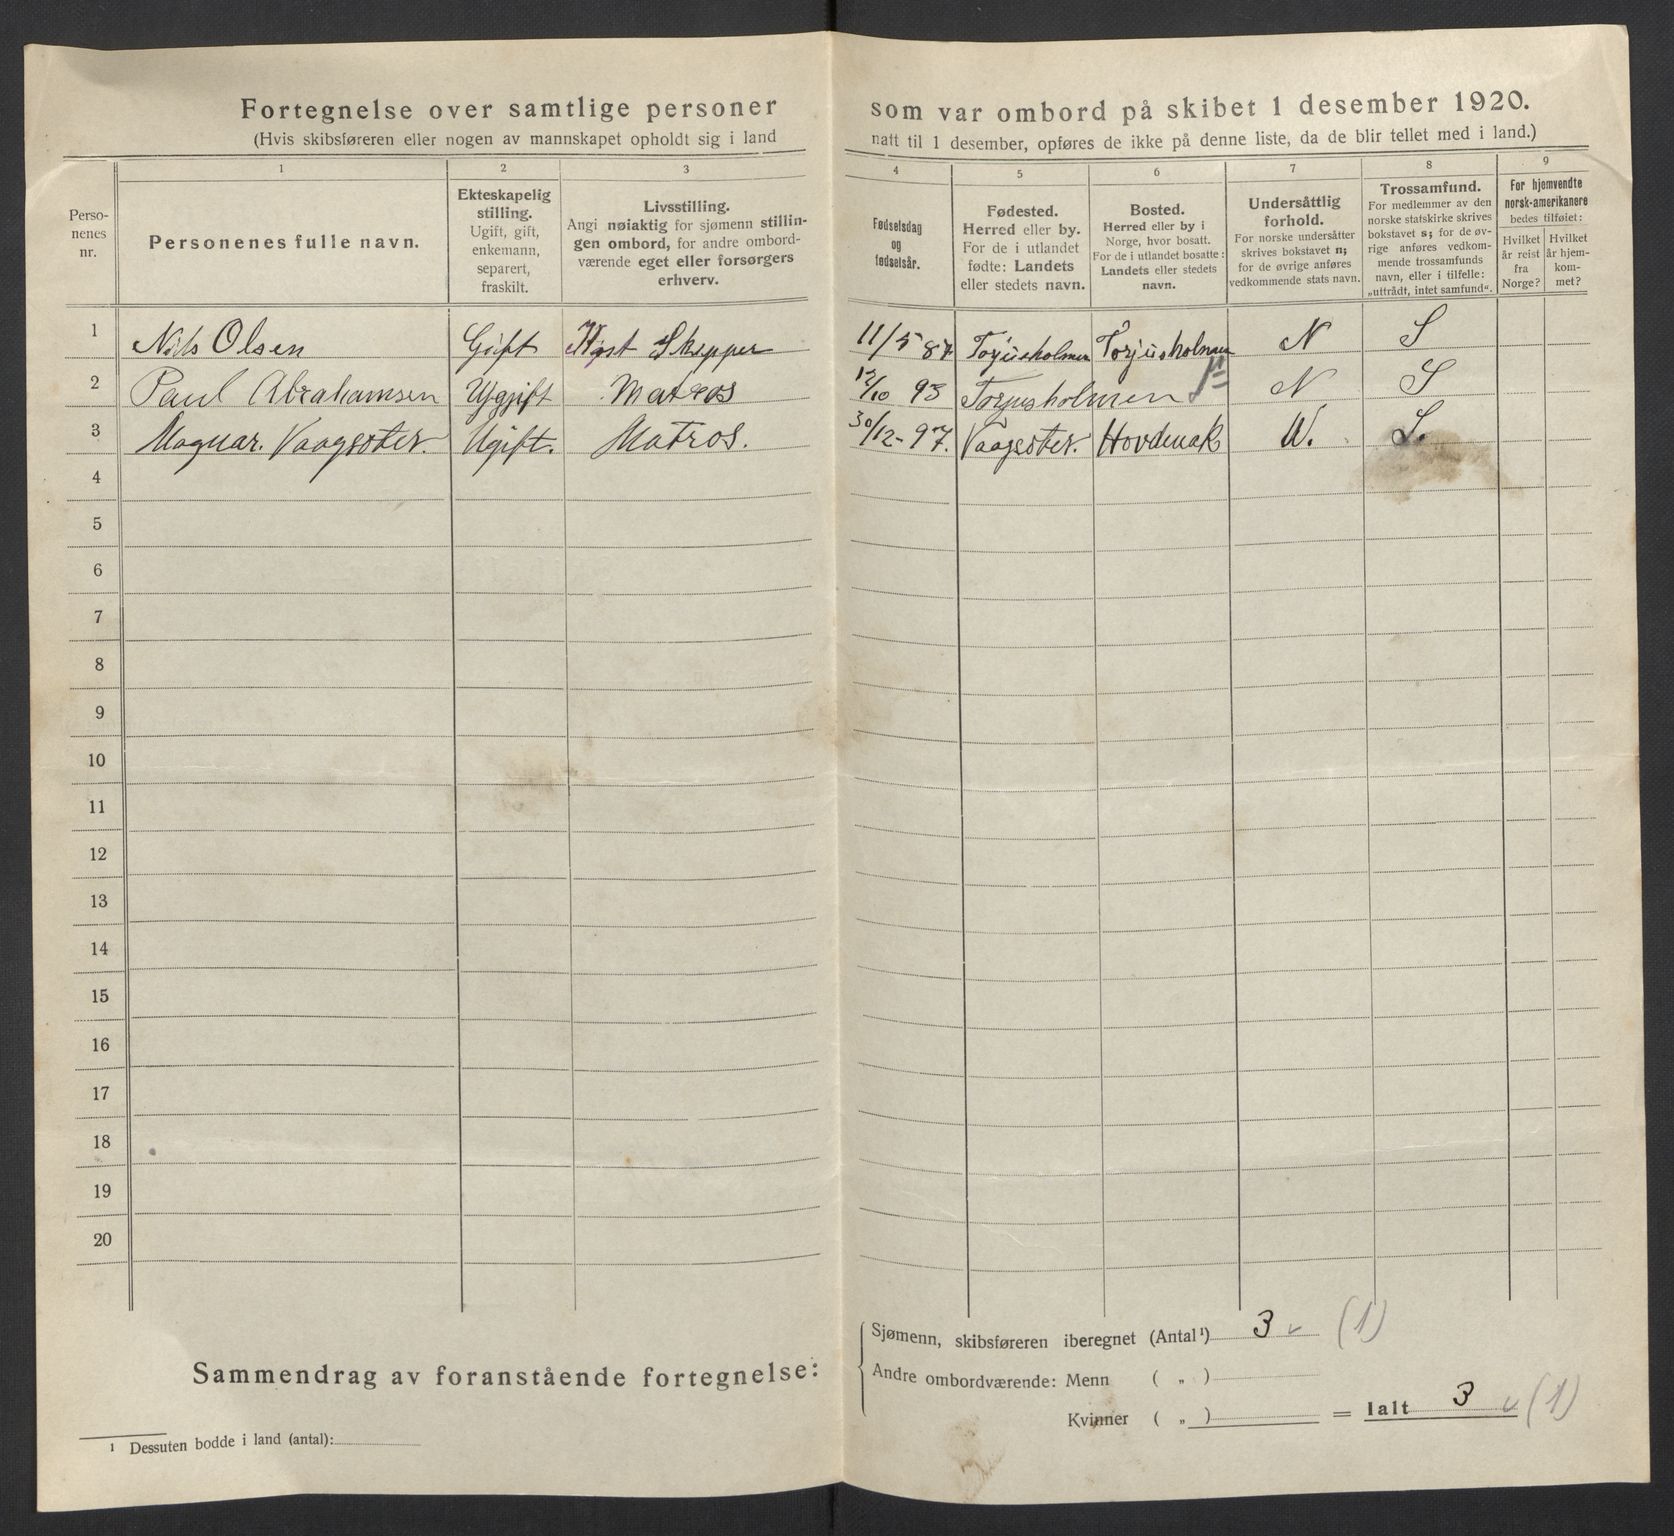 Fortegnelse over samtlige personer som var ombord på skibet 1 desember 1920.
(Hvis skibsføreren eller nogen av mannskapet opholdt sig i land natt til 1 desember, opføres de ikke på denne liste, da de blir tellet med i land.)
Perso-
nenes
nr.
1
Personenes fulle navn.
2
Ekteskapelig
stilling.
Ugift, gift,
enkemann,
separert,
fraskilt.
3
Livsstilling.
Angi nøiaktig for sjømenn stillin-
gen ombord, for andre ombord-
værende eget eller forsørgers
erhverv.
4
Fødselsdag
og
fødselsår.
5
Fødested.
Herred eller by.
For de i utlandet
fødte: Landets
eller stedets navn.
6
Bosted.
Herred eller by i
Norge, hvor bosatt.
For de i utlandet bosatte:
Landets eller stedets
navn.
7
Undersåttlig
forhold.
For norske undersåtter
skrives bokstavet n;
for de øvrige anføres
vedkommende stats navn.
8
Trossamfund.
For medlemmer av den
norske statskirke skrives
bokstavet s; for de øv-
rige anføres vedkom-
mende trossamfunds
navn, eller i tilfelle:
„uttrådt, intet samfund“.
9
For hjemvendte
norsk-amerikanere
bedes tilføiet:
Hvilket
år reist
fra
Norge?
Hvilket
år hjem-
kom-
met?
1 Nils Olsen Gift Kyst Skepper 11/5 87 Torjusholmen Torjusholmen N S
2 Paul Abrahamsen Ugjift Matros 12/10 93 Torjusholmen N S
3 Magnar. Vaagsøter. Ugift. Matros. 30/12-97. Vaagsøter. Hovdenak N. S.
4
5
6
7
8
9
10
11
12
13
14
15
16
17
18
19
20
Sammendrag av foranstående fortegnelse:
Sjømenn, skibsføreren iberegnet (Antal¹) 3 (1)
Andre ombordværende: Menn ( „ )
Kvinner ( „ ) = Ialt 3 (1)
¹ Dessuten bodde i land (antal):